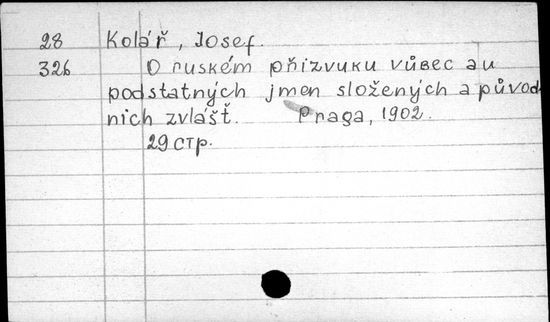 28 Kolář, Josef.
326 O ruském přizvuku vůbec a u
podstatných jmen složených a původ-
nich zvlášť. Praga, 1902.
29 стр.